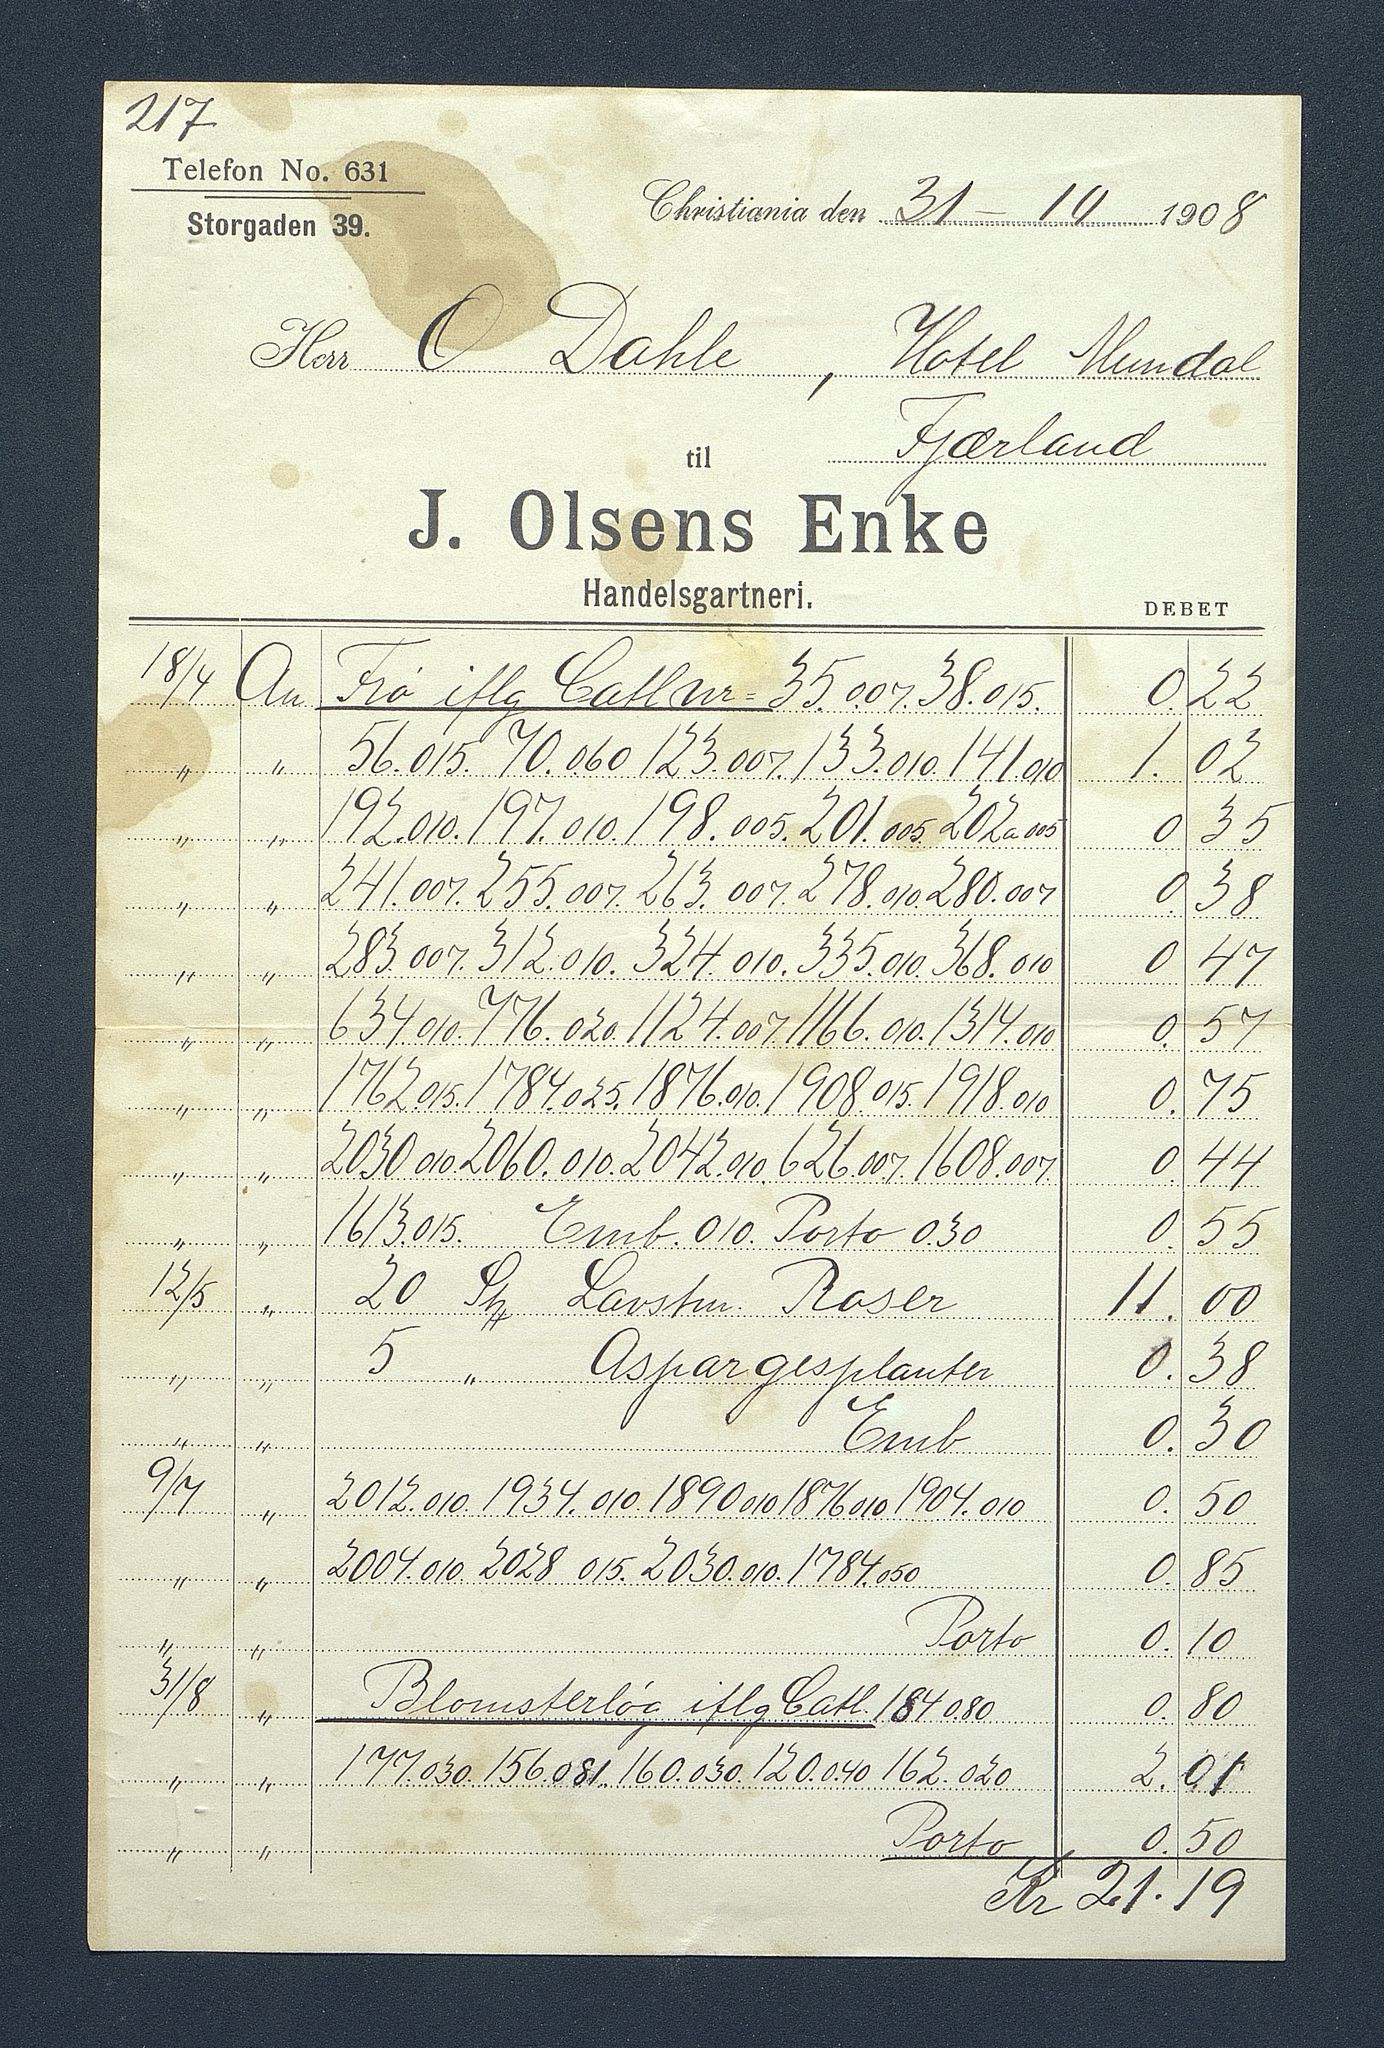 217
Telefon No. 631
Storgaden 39.
Christiania den 31 – 10 1908
Herr O Dahle, Hotel Mundal
Fjærland
til
J. Olsens Enke
Handelsgartneri.
DEBET
18/4 An Frø iflg Catl nr= 35.007. 38.015. 0.22
" " 56.015. 70.060 123.007. 133.010. 141.010 1.02
" " 192.010. 197.010. 198.005. 201.005 202a005 0 35
" " 241.007. 255.007. 263.007. 278.010. 280.007 0.38
" " 283.007. 312.010. 324.010. 335.010. 368.010 0 47
" " 634.010. 776.020. 1124.007. 1166.010. 1314.010 0.57
" " 1762.015. 1784.025. 1876.010. 1908.015. 1918.010 0.75
" " 2030 010. 2060.010. 2042.010. 626.007. 1608.007. 0.44
" " 1613.015. Emb. 010. Porto 030 0.55
12/5 " 20 Stk Lavstm. Roser 11.00
" " 5 " Aspargesplanter 0.38
" " Emb 0.30
9/7 " 2012.010. 1934.010. 1890 010 1876 010 1904.010 0.50
" " 2004.010. 2028 015. 2030.010. 1784.050 0.85
" " Porto 0.10
31/8 " Blomsterløg iflg Catl. 184 080 0.80
" " 177.030. 156.081. 160.030. 120.040 162.020 2.01
" " Porto 0.50
Kr 21.19